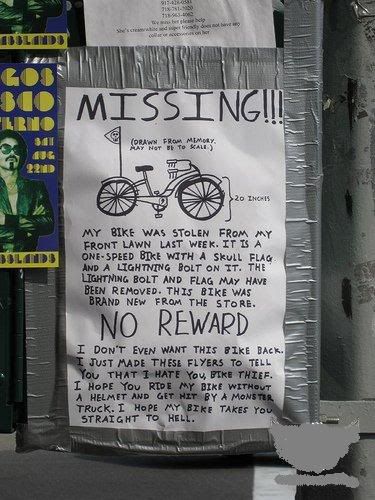 917-428-0581
718-781-7020
718-963-4062
We miss her please help
She's cream/white and super friendly does not have any
collar or accessories on her
MISSING!!!
(DRAWN FROM MEMORY.
MAY NOT BE TO SCALE.)
20 INCHES
MY BIKE WAS STOLEN FROM MY
FRONT LAWN LAST WEEK. IT IS A
ONE-SPEED BIKE WITH A SKULL FLAG
AND A LIGHTNING BOLT ON IT. THE
LIGHTNING BOLT AND FLAG MAY HAVE
BEEN REMOVED. THIS BIKE WAS
BRAND NEW FROM THE STORE.
NO REWARD
I DON'T EVEN WANT THIS BIKE BACK.
I JUST MADE THESE FLYERS TO TELL
YOU THAT I HATE YOU, BIKE THIEF.
I HOPE YOU RIDE MY BIKE WITHOUT
A HELMET AND GET HIT BY A MONSTER
TRUCK. I HOPE MY BIKE TAKES YOU
STRAIGHT TO HELL.
GOS
SCO
ERNO
SAT
AUG
22ND